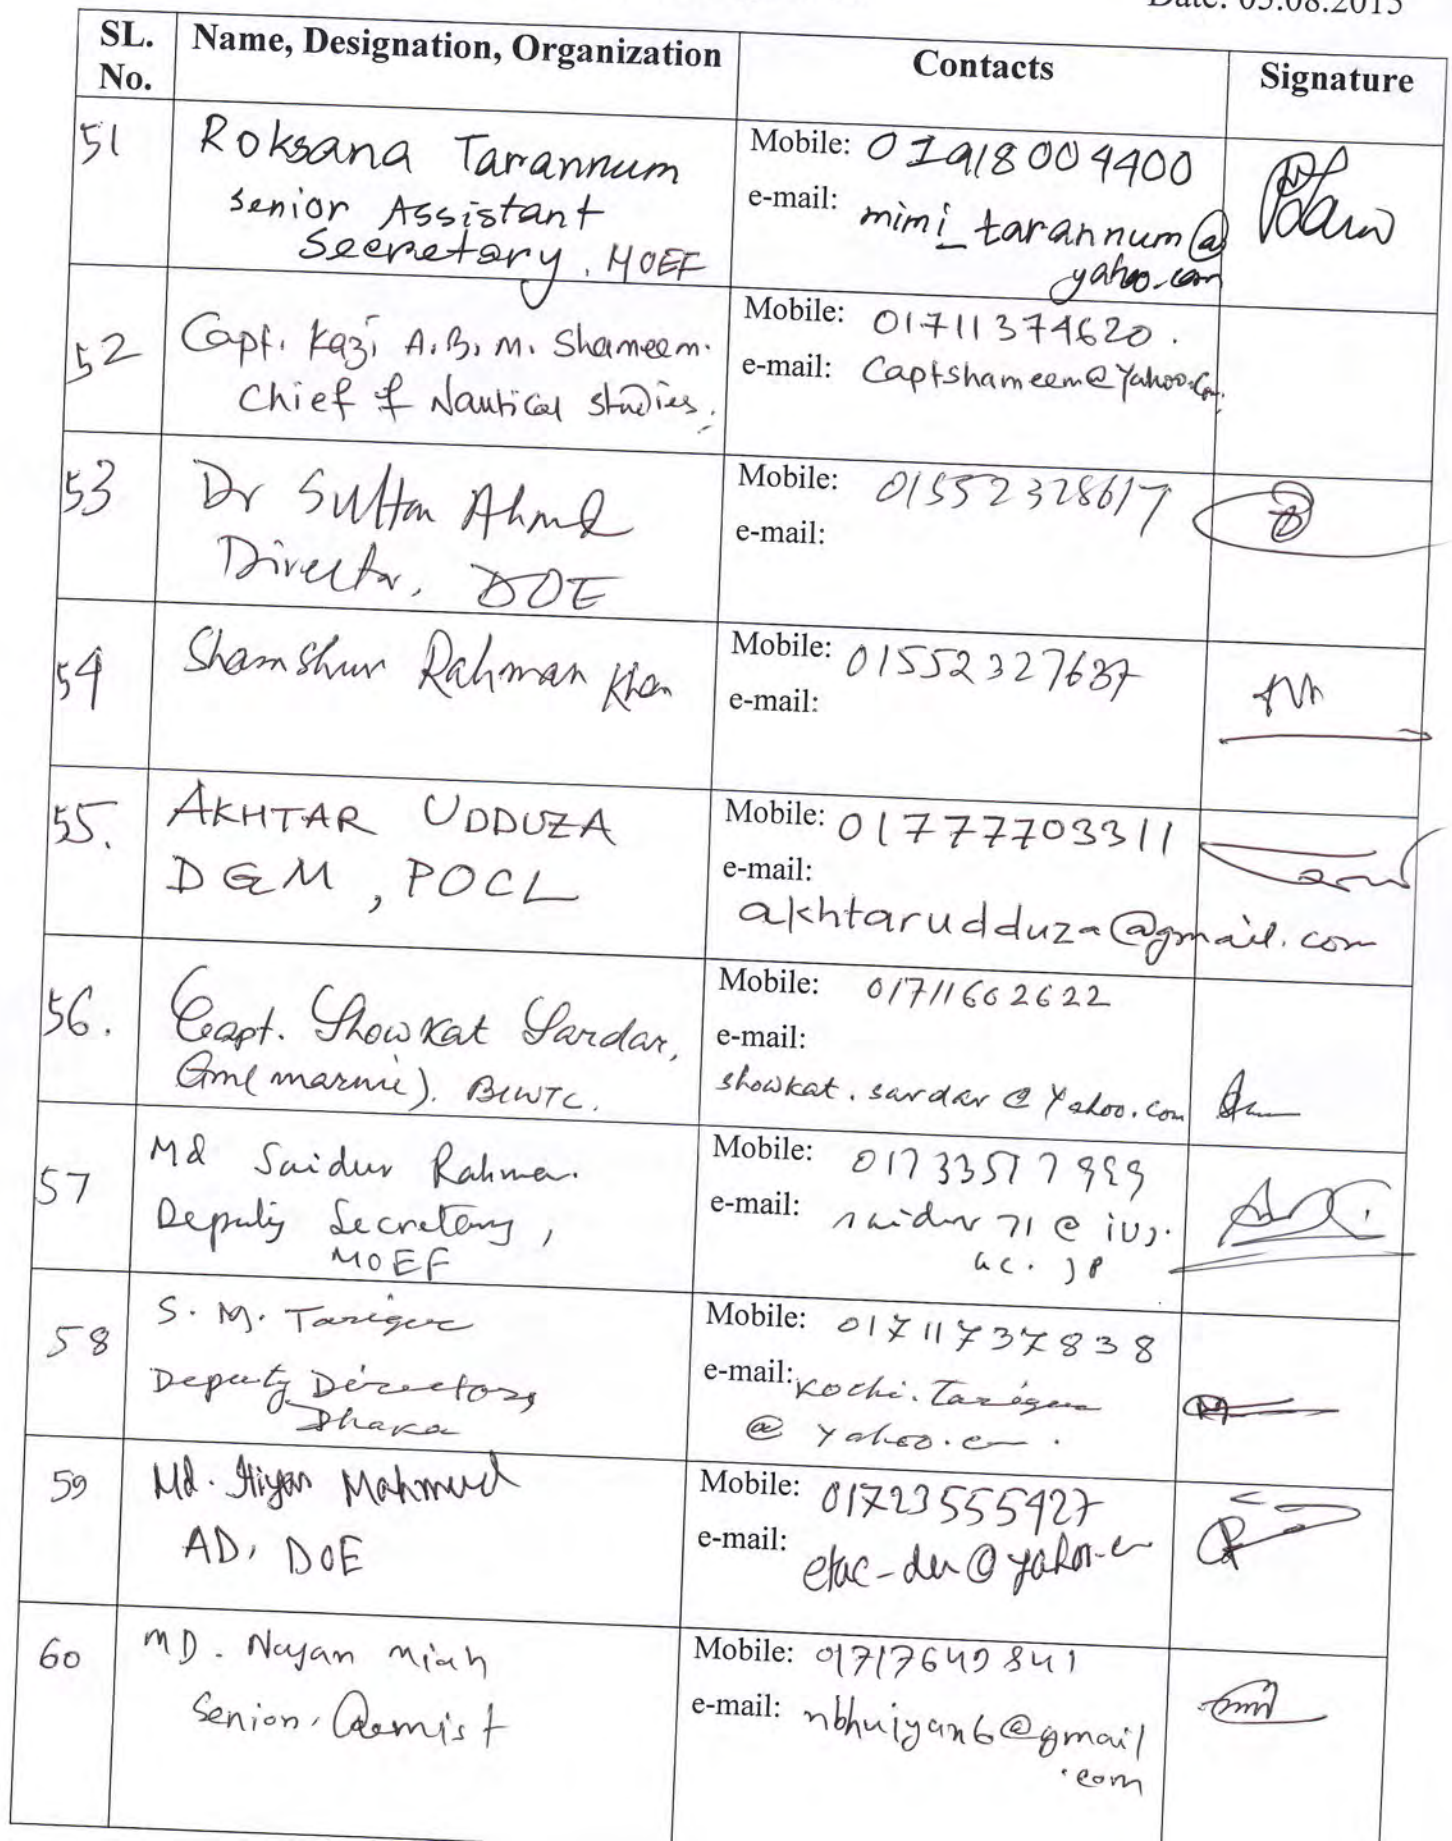 Date: 05.08.2015
SL. No.
Name, Designation, Organization
Contacts
Signature
51
Roksana Tarannum
Senior Assistant
Secretary, MOEF
Mobile: 01918004400
e-mail: mimi_tarannum@
yahoo.com
52
Capt. Kazi A.B.M. Shameem.
Chief of Nautical studies.
Mobile: 01711374620.
e-mail: Captshameem@Yahoo.Com
53
Dr Sultan Ahmed
Director, DOE
Mobile: 01552328617
e-mail:
54
Shamshur Rahman Khan
Mobile: 01552327637
e-mail:
55.
AKHTAR UDDUZA
DGM, POCL
Mobile: 01777703311
e-mail:
akhtarudduza@gmail.com
56.
Capt. Showkat Sardar,
Gm(marine). BIWTC.
Mobile: 01711662622
e-mail:
showkat.sardar@Yahoo.com
57
Md Saidur Rahman.
Deputy Secretary,
MOEF
Mobile: 01733517999
e-mail: saidur71@iuj.
ac.jp
58
S. M. Tarique
Deputy Director,
Dhaka
Mobile: 01711737838
e-mail: Kochi.Tarique
@yahoo.com.
59
Md. Mahmud
AD, DOE
Mobile: 01723555927
e-mail:
60
MD. Nayan Miah
Senior, Chemist
Mobile: 01717649841
e-mail: nbhuiyan6@gmail
.com